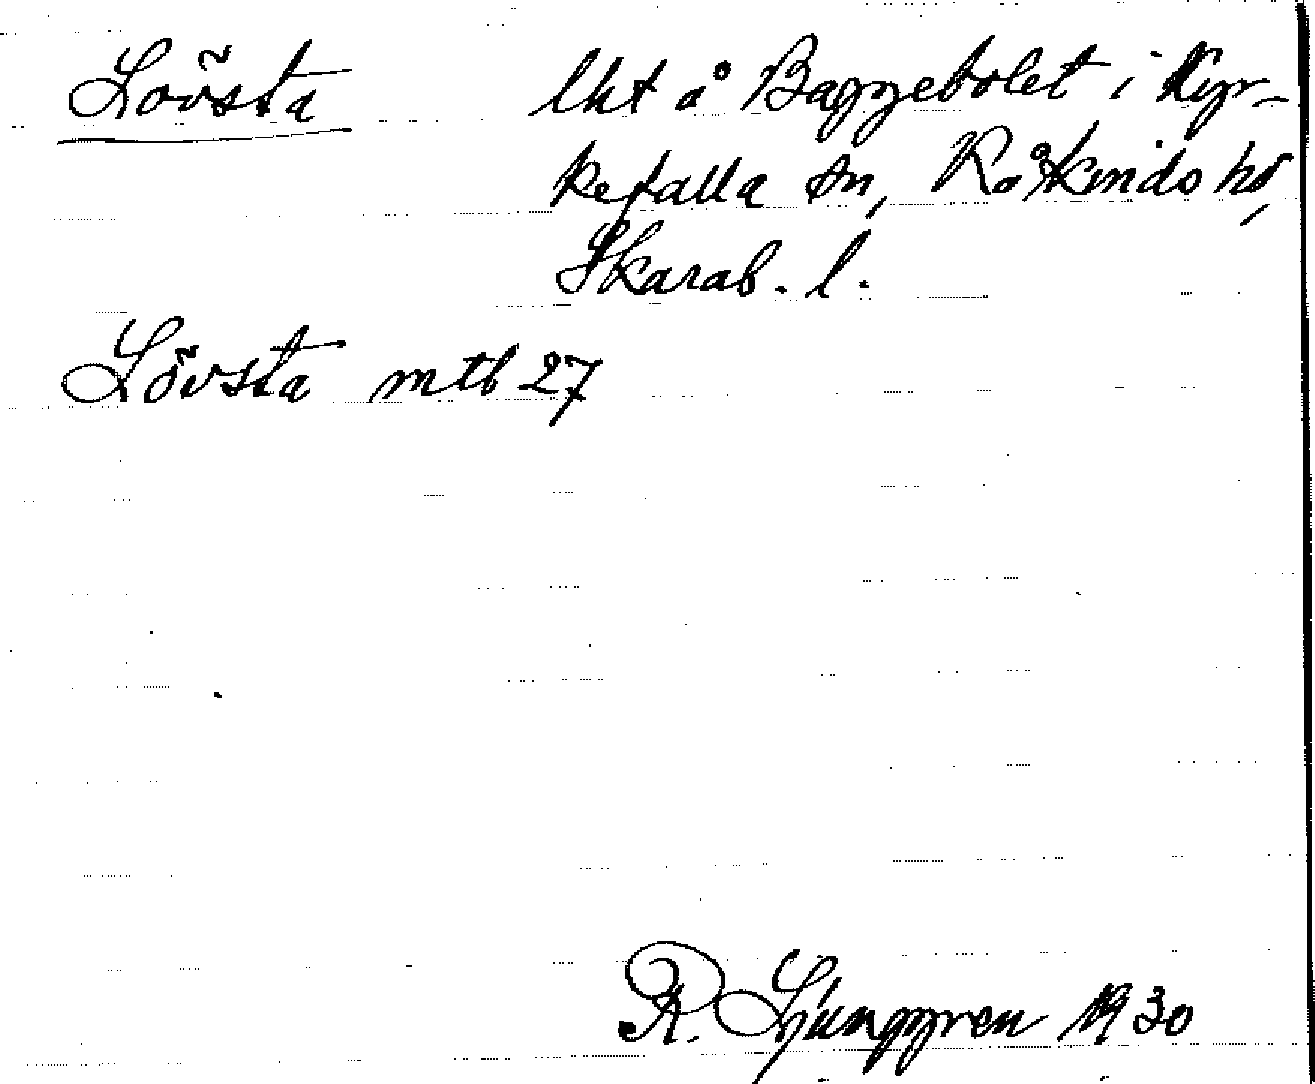 Lövsta lht å Baggebolet i Kyr-
kefalla sn, Råkinds hd,
Skarab. l.
Lövsta mtb 27
R. Ljunggren 1930